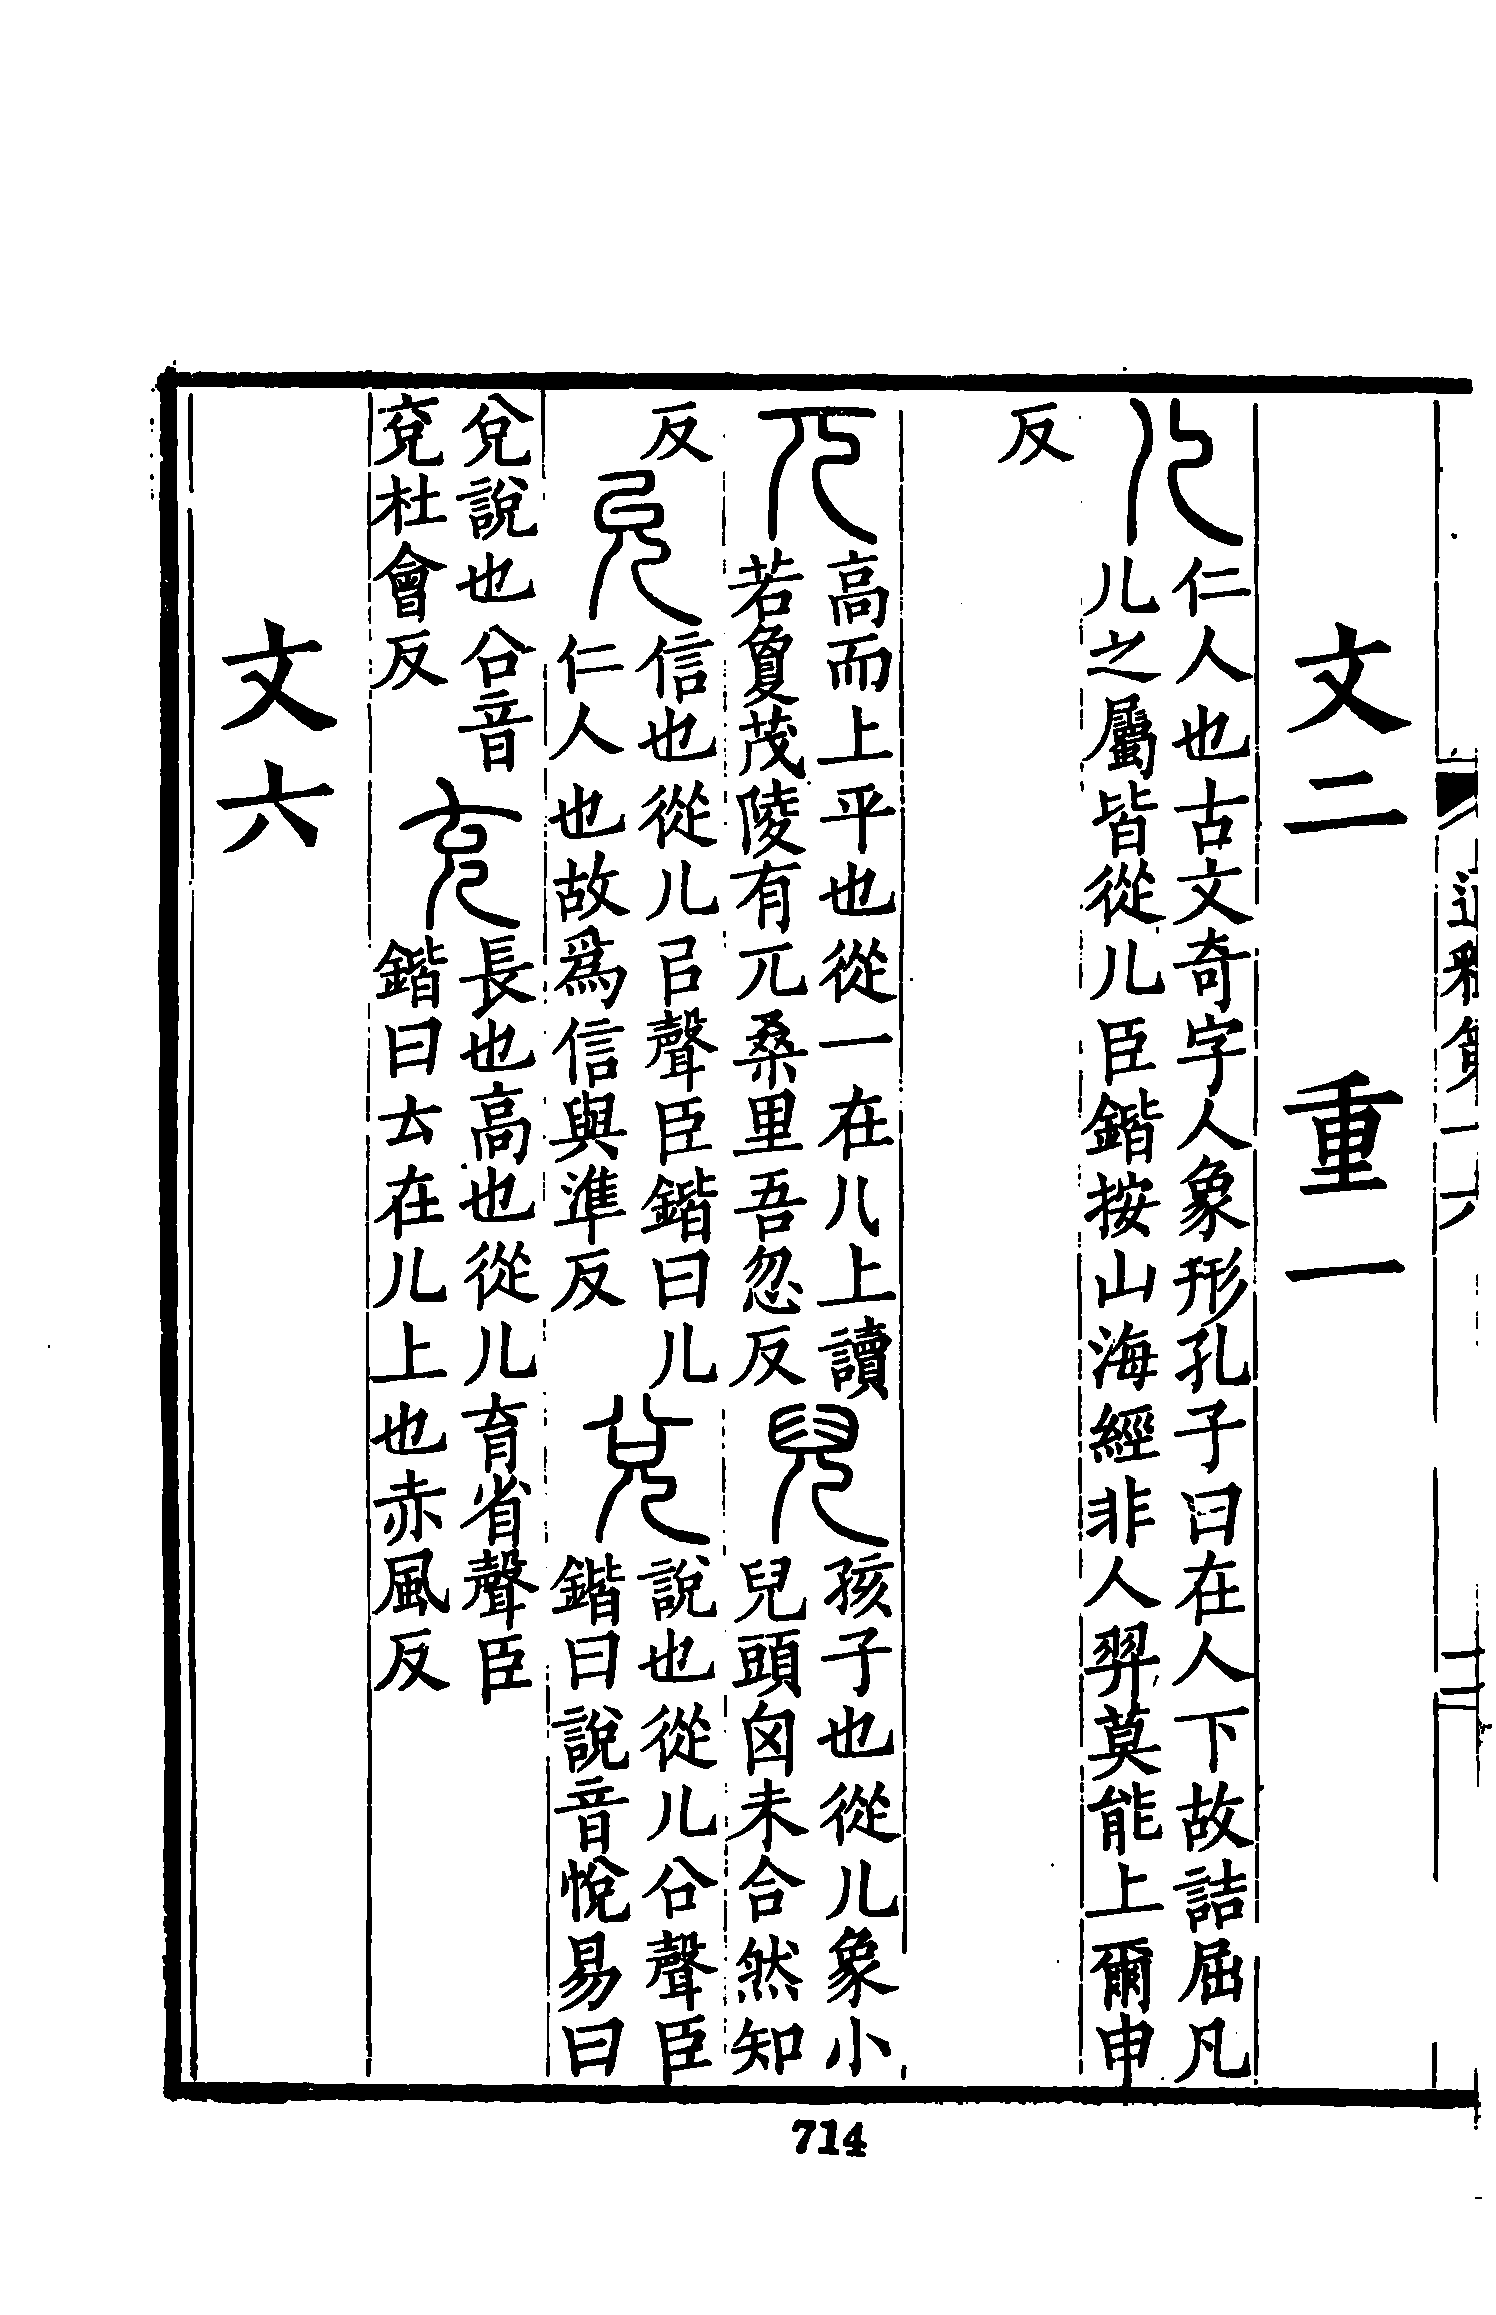 文二　重一
儿仁人也古文奇字人象形孔子曰在人下故詰屈凡
儿之屬皆從儿臣鍇按山海經非人羿莫能上爾申
反
兀高而上平也從一在儿上讀
若敻茂陵有兀桑里吾忽反
兒孩子也從儿象小
兒頭囟未合然知
反
允信也從儿㠯聲臣鍇曰儿
仁人也故爲信與準反
兌說也從儿㕣聲臣
鍇曰說音悅易曰
兌說也㕣音
兗杜會反
充長也高也從儿育省聲臣
鍇曰𠫓在儿上也赤風反
文六
通釋第十六
二
714